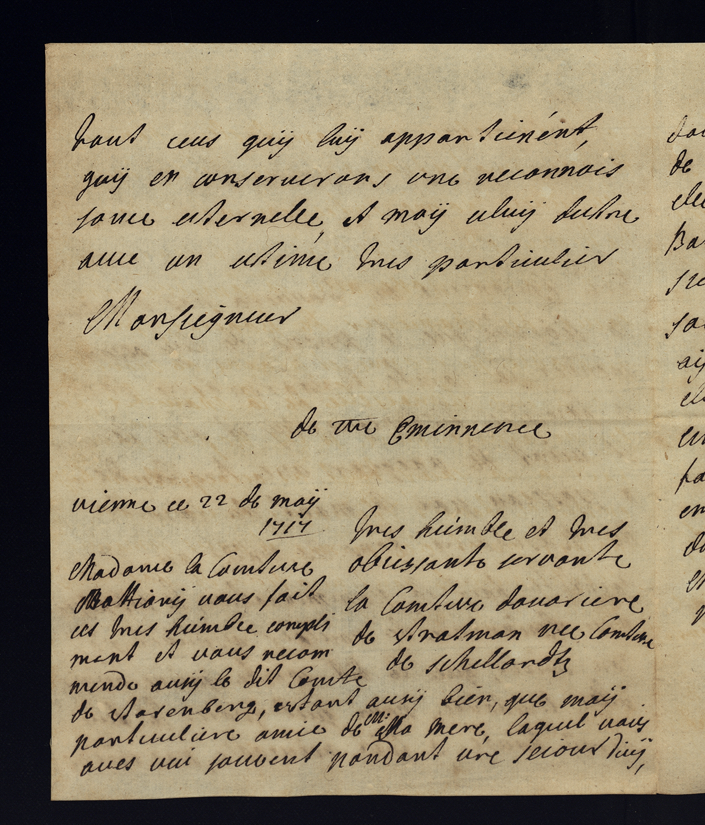 tout ceus quÿ luÿ appartienént,
quÿ en conserverons une reconnois
sance eternelle, et moÿ celuÿ destre
avec un estime tres particulier
Monseigneur
de vtre Eminnence
vienne ce 22 de maÿ
1717
tres húmble et tres
obeissante servante
la Comtesse douariere
de stratman nee Comtesse
de schellardtz
Madame la Comtesse
Battianÿ vous fait
ces tres húmble compli
ment et vous recom
mende ausÿ le dit Comte
de starenberg, estant ausÿ bien, que moÿ
particuliere amie de Md: sa Mere, laquel vous
aves veu souvent pandant vre seiour